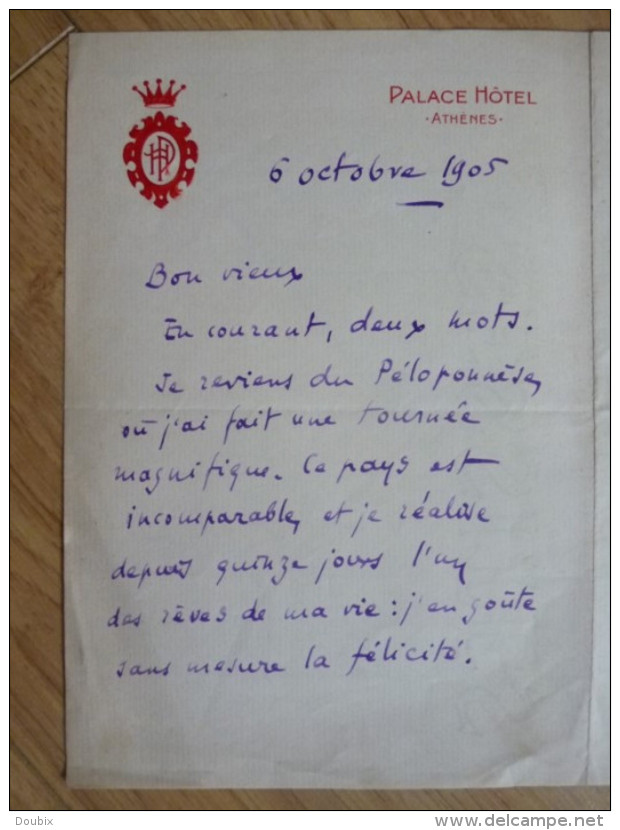 PALACE HÔTEL
·ATHÈNES·
6 octobre 1905
Bon vieux
En courant, deux mots.
Je reviens du Péloponnèse,
où j'ai fait une tournée
magnifique. Ce pays est
incomparable, et je réalise
depuis quinze jours l'un
des rêves de ma vie : j'en goûte
sans mesure la félicité.
Doubix
www.delcampe.net